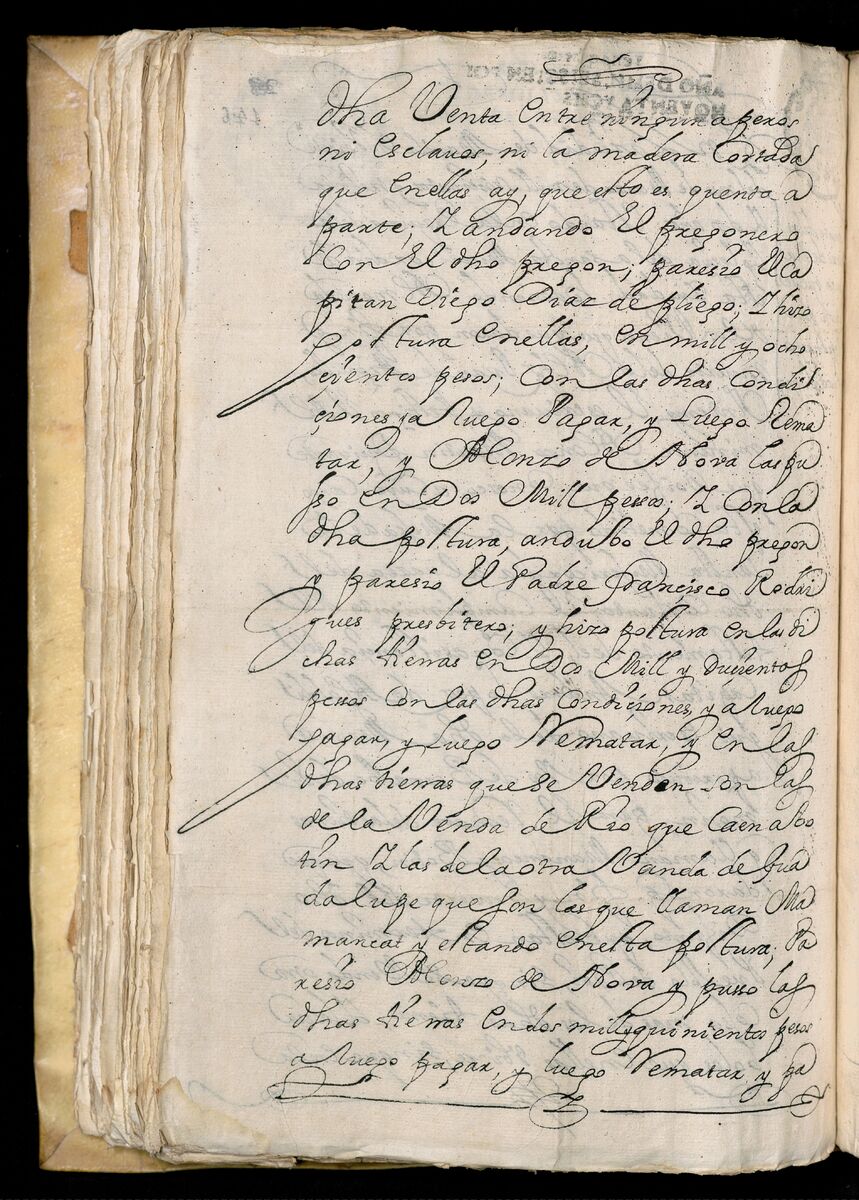 dha Venta entre ninguna peros
ni esclavos, ni la madera Cortada
que en ellas ay, que esto es quenta a
parte; Y andando El pregonero
Con El dho pregon; paresio El Ca
pitan Diego Diaz de pliego; Y hizo
postura en ellas, en mill y ocho
cientos pesos; Con las dhas Condi
ciones, a luego Pagar, y Luego Rema
tar, y Alonzo de Nova las pu
sso en Dos Mill pessos; Y Con la
dha postura, andubo El dho pregon
y paresio El Padre francisco Rodri
gues presbitero; y hizo postura en las di
chas tierras en Dos Mill y ducientos
pessos Con las dhas Condiciones, y a luego
pagar, y Luego Rematar, y en las
dhas tierras que se Venden son las
de la Venda de Rio que Caen a bo
tin Y las de la otra Vanda de gua
dalupe que son las que llaman Ma
mancat y estando en esta postura; Pa
resio Alonzo de Nova y pusso las
dhas tierras en dos mill y quinientos pesos
a luego pagar, y luego Rematar y pa